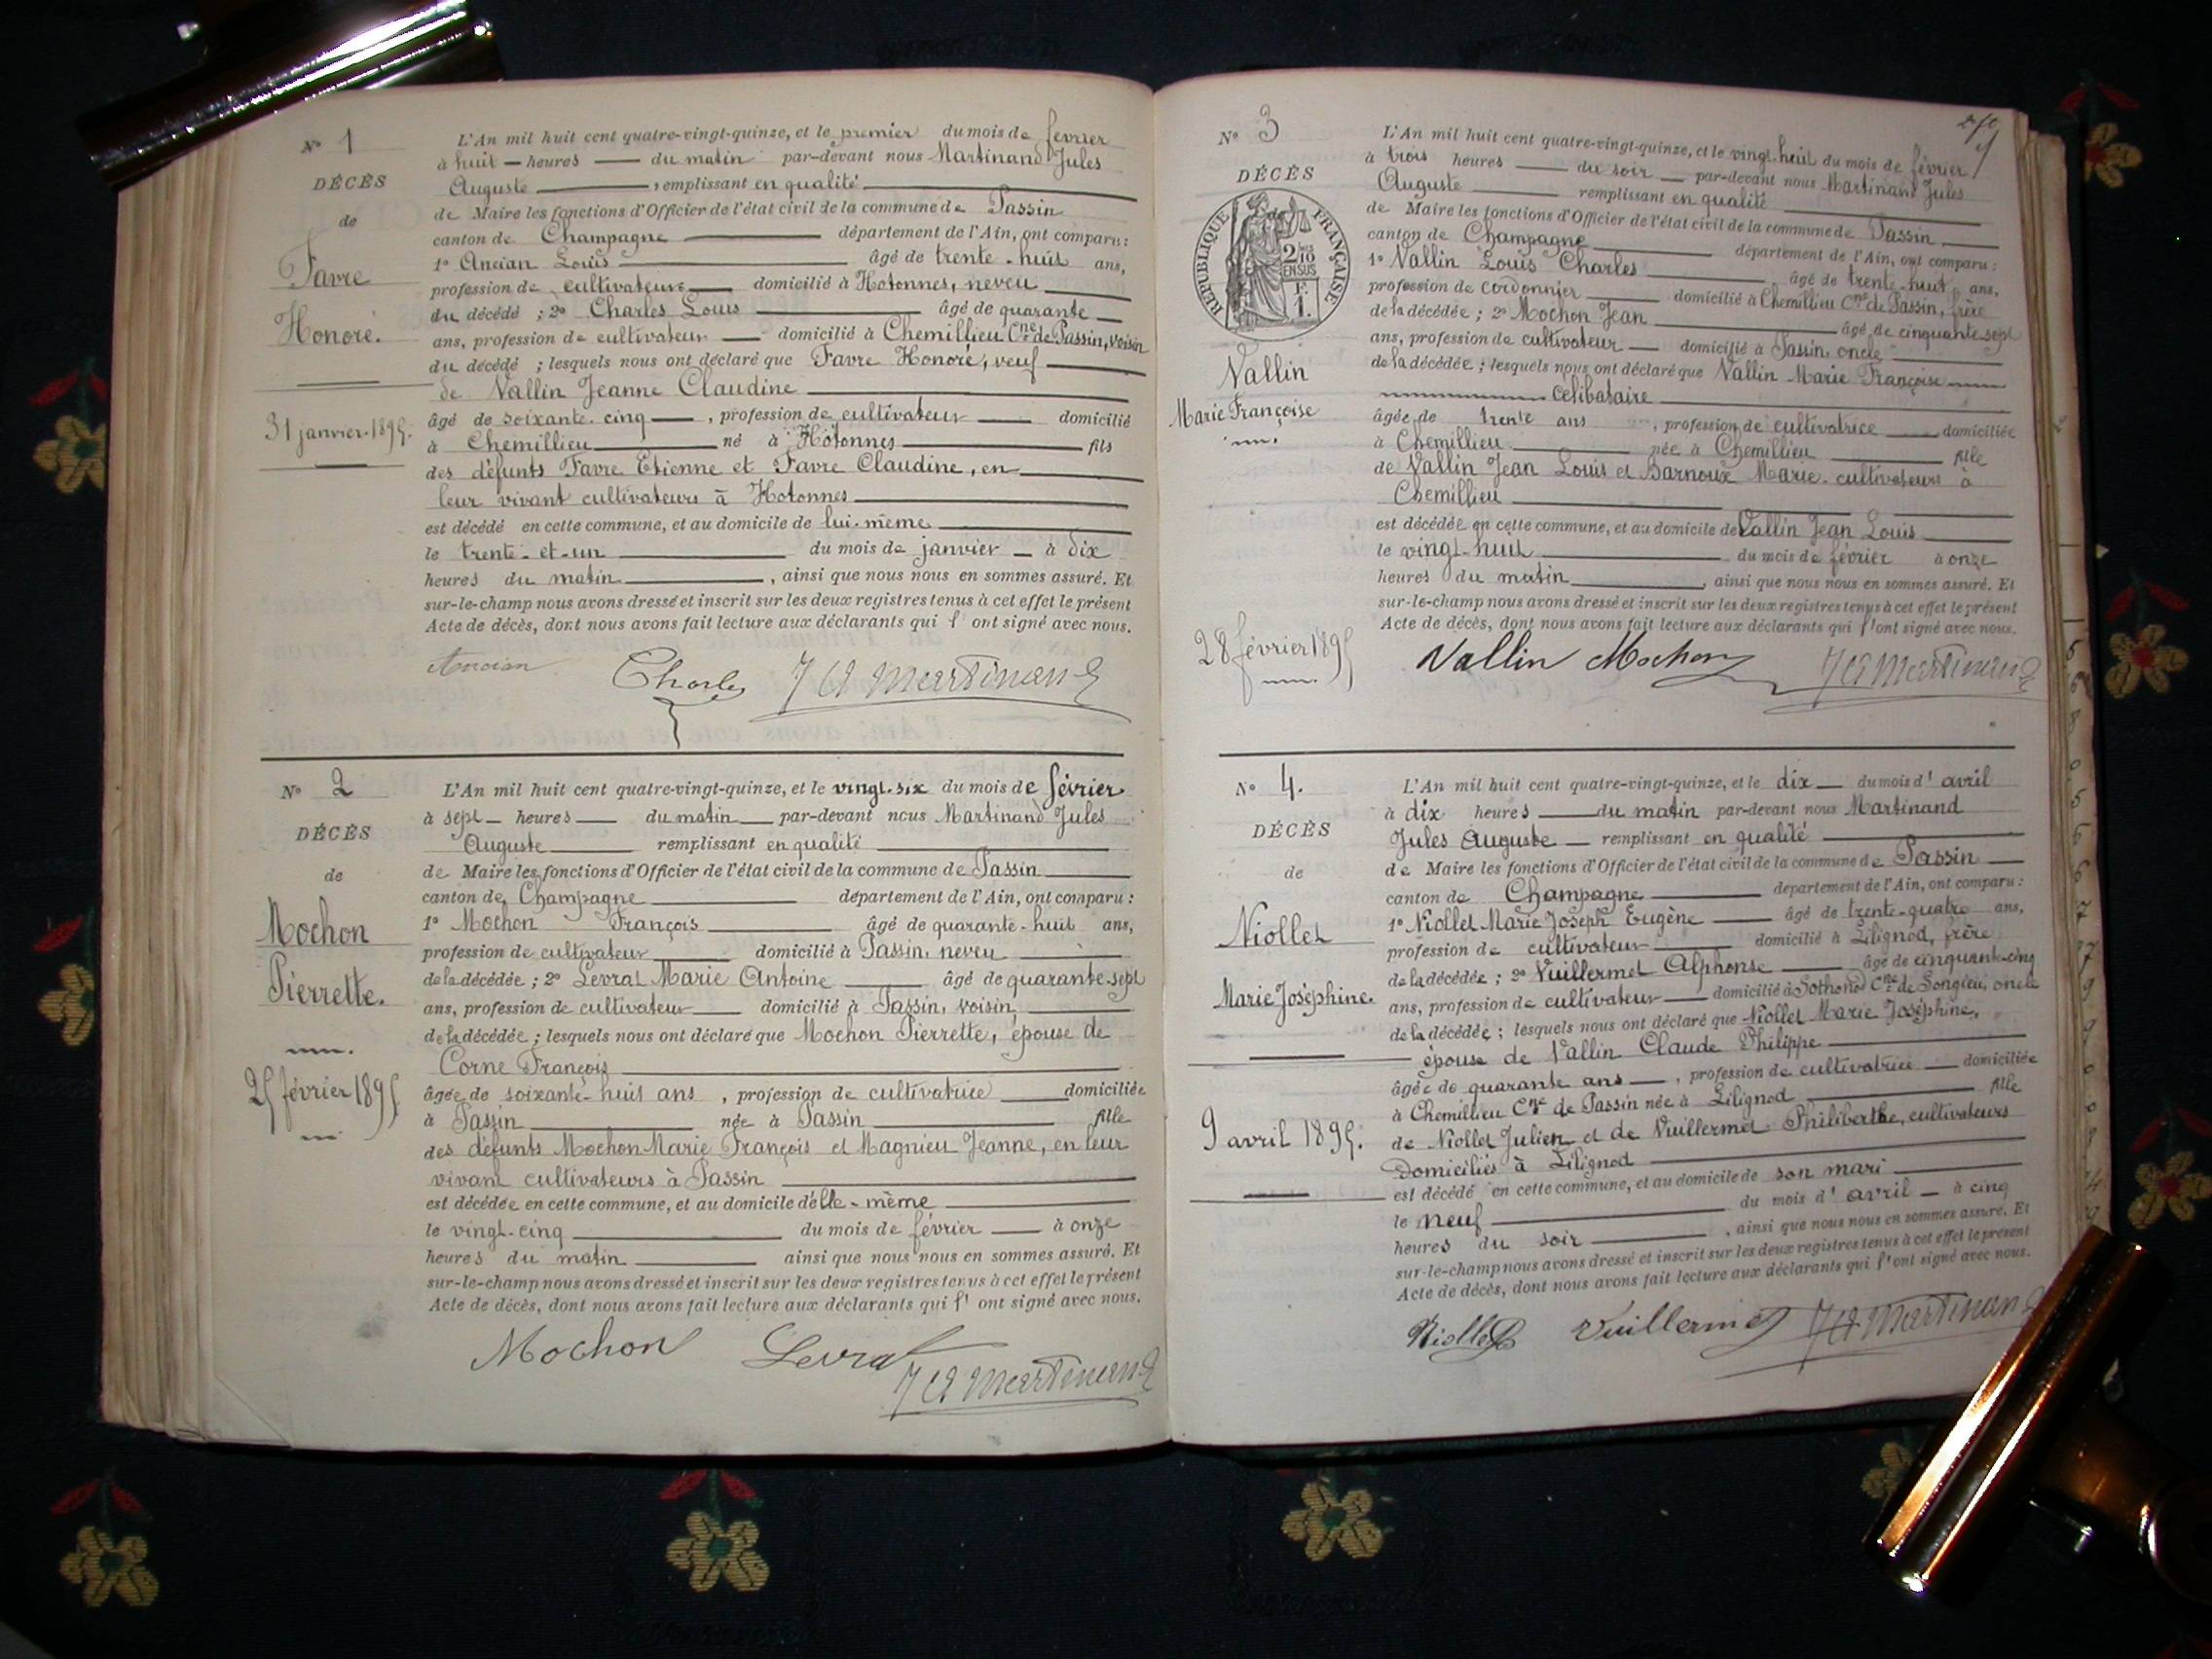 N° 1
DÉCÈS
de
Favre
Honoré.
31 janvier 1895.
L'An mil huit cent quatre-vingt-quinze, et le premier du mois de février
à huit — heures — du matin par-devant nous Martinand Jules
Auguste — remplissant en qualité
de Maire les fonctions d'Officier de l'état civil de la commune de Passin
canton de Champagne — département de l'Ain, ont comparu:
1° Ancian Louis — âgé de trente-huit ans,
profession de cultivateur — domicilié à Hotonnes, neveu
du décédé ; 2° Charles Louis — âgé de quarante —
ans, profession de cultivateur — domicilié à Chemillieu Cne de Passin, voisin
du décédé ; lesquels nous ont déclaré que Favre Honoré, veuf —
de Vallin Jeanne Claudine —
âgé de soixante-cinq —, profession de cultivateur — domicilié
à Chemillieu — né à Hotonnes — fils
des défunts Favre Etienne et Favre Claudine, en —
leur vivant cultivateurs à Hotonnes —
est décédé en cette commune, et au domicile de lui-même —
le trente-et-un — du mois de janvier — à dix
heures du matin —, ainsi que nous nous en sommes assuré. Et
sur-le-champ nous avons dressé et inscrit sur les deux registres tenus à cet effet le présent
Acte de décès, dont nous avons fait lecture aux déclarants qui l'ont signé avec nous.
Ancian Charles J A Martinand
N° 2
DÉCÈS
de
Mochon
Pierrette.
25 février 1895
L'An mil huit cent quatre-vingt-quinze, et le vingt-six du mois de février
à sept — heures — du matin — par-devant nous Martinand Jules
Auguste — remplissant en qualité —
de Maire les fonctions d'Officier de l'état civil de la commune de Passin —
canton de Champagne — département de l'Ain, ont comparu :
1° Mochon François — âgé de quarante-huit ans,
profession de cultivateur — domicilié à Passin, neveu —
de la décédée ; 2° Levrat Marie Antoine — âgé de quarante-sept
ans, profession de cultivateur — domicilié à Passin, voisin —
de la décédée ; lesquels nous ont déclaré que Mochon Pierrette, épouse de
Corne François —
âgée de soixante-huit ans , profession de cultivatrice — domiciliée
à Passin — née à Passin — fille
des défunts Mochon Marie François et Magnieu Jeanne, en leur
vivant cultivateurs à Passin —
est décédée en cette commune, et au domicile d'elle-même —
le vingt-cinq — du mois de février — à onze
heures du matin — ainsi que nous nous en sommes assuré. Et
sur-le-champ nous avons dressé et inscrit sur les deux registres tenus à cet effet le présent
Acte de décès, dont nous avons fait lecture aux déclarants qui l'ont signé avec nous.
Mochon Levrat J A Martinand
N° 3
DÉCÈS
RÉPUBLIQUE FRANÇAISE.
2/10 EN SUS
F. 1.
Vallin
Marie Françoise
28 février 1895
L'An mil huit cent quatre-vingt-quinze, et le vingt-huit du mois de février
à trois heures — du soir — par-devant nous Martinand Jules
Auguste — remplissant en qualité —
de Maire les fonctions d'Officier de l'état civil de la commune de Passin —
canton de Champagne — département de l'Ain, ont comparu :
1° Vallin Louis Charles — âgé de trente-huit ans,
profession de cordonnier — domicilié à Chemillieu Cne de Passin, frère
de la décédée ; 2° Mochon Jean — âgé de cinquante-sept
ans, profession de cultivateur — domicilié à Passin, oncle —
de la décédée ; lesquels nous ont déclaré que Vallin Marie Françoise —
— célibataire —
âgée de trente ans , profession de cultivatrice — domiciliée
à Chemillieu — née à Chemillieu — fille
de Vallin Jean Louis et Barnoux Marie, cultivateurs à
Chemillieu —
est décédée en cette commune, et au domicile de Vallin Jean Louis —
le vingt-huit — du mois de février à onze
heures du matin —, ainsi que nous nous en sommes assuré. Et
sur-le-champ nous avons dressé et inscrit sur les deux registres tenus à cet effet le présent
Acte de décès, dont nous avons fait lecture aux déclarants qui l'ont signé avec nous.
Vallin Mochon J A Martinand
N° 4.
DÉCÈS
de
Niollet
Marie Joséphine.
9 avril 1895.
L'An mil huit cent quatre-vingt-quinze, et le dix — du mois d'avril
à dix heures — du matin par-devant nous Martinand
Jules Auguste — remplissant en qualité —
de Maire les fonctions d'Officier de l'état civil de la commune de Passin —
canton de Champagne — département de l'Ain, ont comparu :
1° Niollet Marie Joseph Eugène — âgé de trente-quatre ans,
profession de cultivateur — domicilié à Lilignod, frère
de la décédée ; 2° Vuillermet Alphonse — âgé de cinquante-cinq
ans, profession de cultivateur — domicilié à Sothonod Cne de Songieu, oncle
de la décédée ; lesquels nous ont déclaré que Niollet Marie Joséphine,
épouse de Vallin Claude Philippe —
âgée de quarante ans —, profession de cultivatrice — domiciliée
à Chemillieu Cne de Passin née à Lilignod — fille
de Niollet Julien et de Vuillermet Philiberthe, cultivateurs
domiciliés à Lilignod —
est décédé en cette commune, et au domicile de son mari —
le neuf — du mois d'avril — à cinq
heures du soir —, ainsi que nous nous en sommes assuré. Et
sur-le-champ nous avons dressé et inscrit sur les deux registres tenus à cet effet le présent
Acte de décès, dont nous avons fait lecture aux déclarants qui l'ont signé avec nous.
Niollet Vuillermet J A Martinand